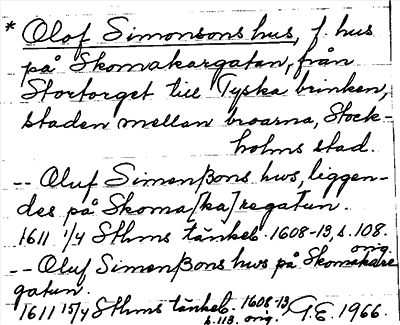 * Olof Simonsons hus, f. hus
på Skomakargatan, från
Stortorget till Tyska brinken,
staden mellan broarna, Stock-
holms stad.
-- Oluf Simenßons hws, liggen-
des på Skoma[ka]regatun.
1611 1/4 Sthms tänkeb. 1608-13, s. 108.
orig.
-- Oluf Simenßons hws på Skomakare
gatun.
1611 15/4 Sthms tänkeb. 1608-13
s. 113. orig. G.E. 1966.